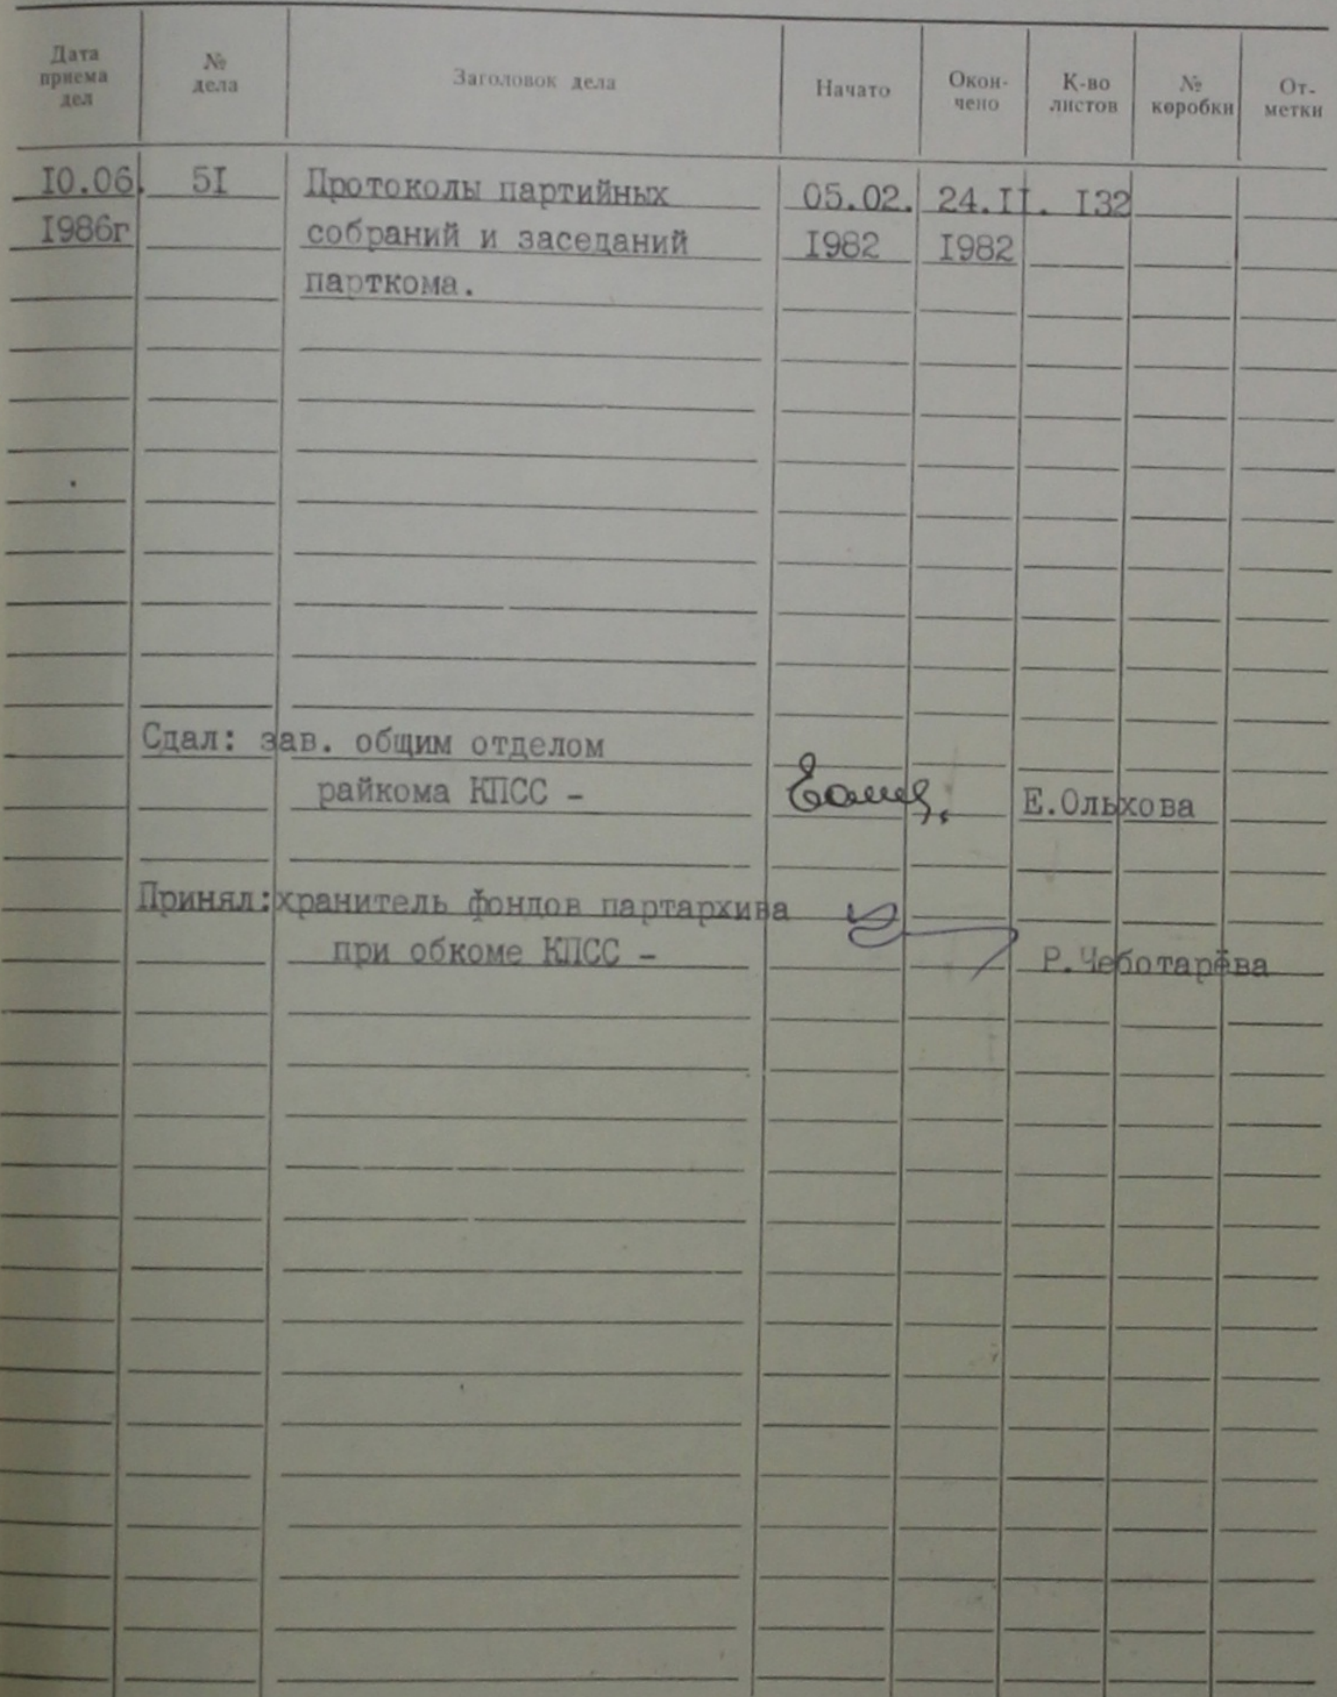 Дата приема дел № дела Заголовок дела Начато Окон- чено К-во листов № коробки От- метки
I0.06. 5I Протоколы партийных 05.02. 24.II. I32
I986г собраний и заседаний I982 I982
парткома.
Сдал: зав. общим отделом
райкома КПСС - Е.Ольхова
Принял:хранитель фондов партархива
при обкоме КПСС - Р.Чеботарёва